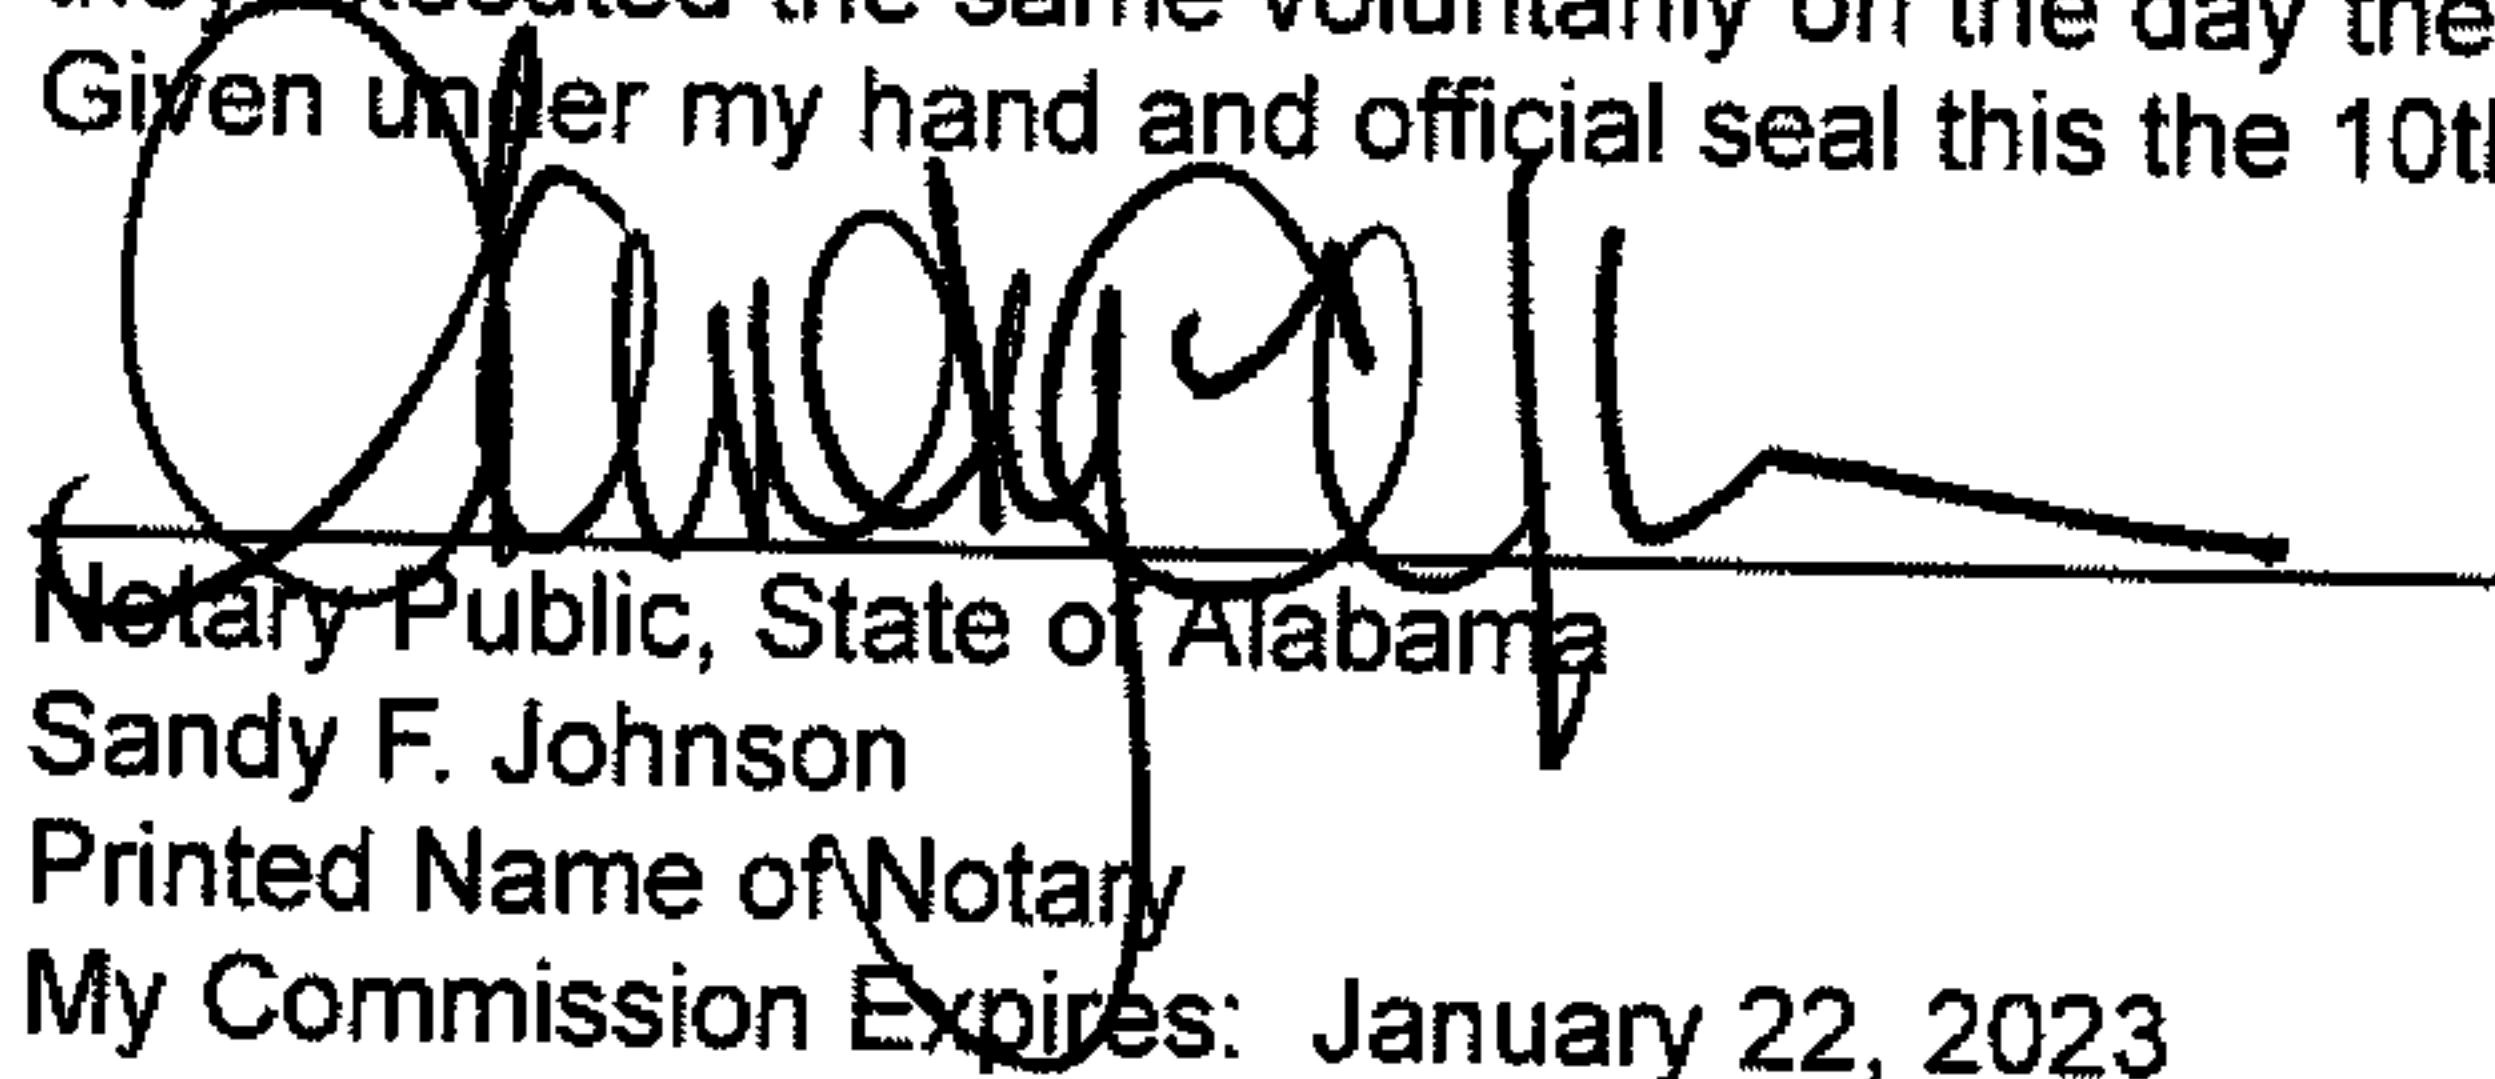 the same voluntarily on the day the
Given under my hand and official seal this the 10th
Notary Public, State of Alabama
Sandy F. Johnson
Printed Name of Notary
My Commission Expires: January 22, 2023